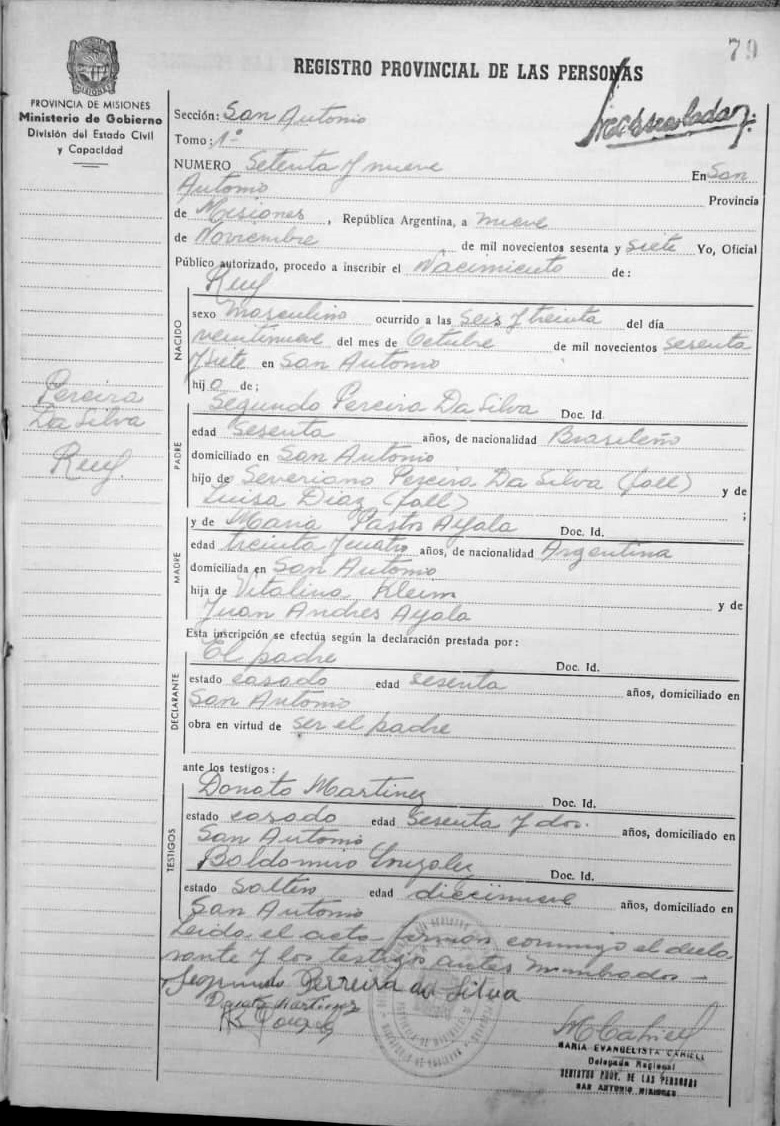 79
REGISTRO PROVINCIAL DE LAS PERSONAS
PROVINCIA DE MISIONES
Ministerio de Gobierno
División del Estado Civil
y Capacidad
Sección: San Antonio
Tomo: 1º
NUMERO Setenta y nueve En San
Antonio Provincia
de Misiones, República Argentina, a nueve
de Noviembre de mil novecientos sesenta y siete Yo, Oficial
Público autorizado, procedo a inscribir el Nacimiento de:
Ruy
NACIDO
sexo Masculino ocurrido a las Seis y treinta del día
veintinueve del mes de Octubre de mil novecientos sesenta
y siete en San Antonio
hijo de:
Pereira
Da Silva
Ruy.
PADRE
Segundo Pereira Da Silva Doc. Id.
edad Sesenta años, de nacionalidad Brasileño
domiciliado en San Antonio
hijo de Severiano Pereira Da Silva (fall) y de
Luisa Diaz (fall) ;
MADRE
y de Maria Pastr Ayala Doc. Id.
edad treinta y cuatro años, de nacionalidad Argentina
domiciliada en San Antonio
hija de Vitalina Kleim y de
Juan Andres Ayala
Esta inscripción se efectúa según la declaración prestada por:
DECLARANTE
El padre Doc. Id.
estado casado edad sesenta años, domiciliado en
San Antonio
obra en virtud de ser el padre
ante los testigos:
TESTIGOS
Donato Martinez Doc. Id.
estado casado edad sesenta y dos. años, domiciliado en
San Antonio
Baldomiro Gonzalez Doc. Id.
estado soltero edad diecinueve años, domiciliado en
San Antonio
Leida el acta firman conmigo el decla
rante y los testigos antes nombrados -
Segundo Perreira da Silva
Donato Martinez
M Cabiel
MARIA EVANGELISTA CABIELL
Delegada Regional
REGISTRO PROV. DE LAS PERSONAS
SAN ANTONIO MISIONES